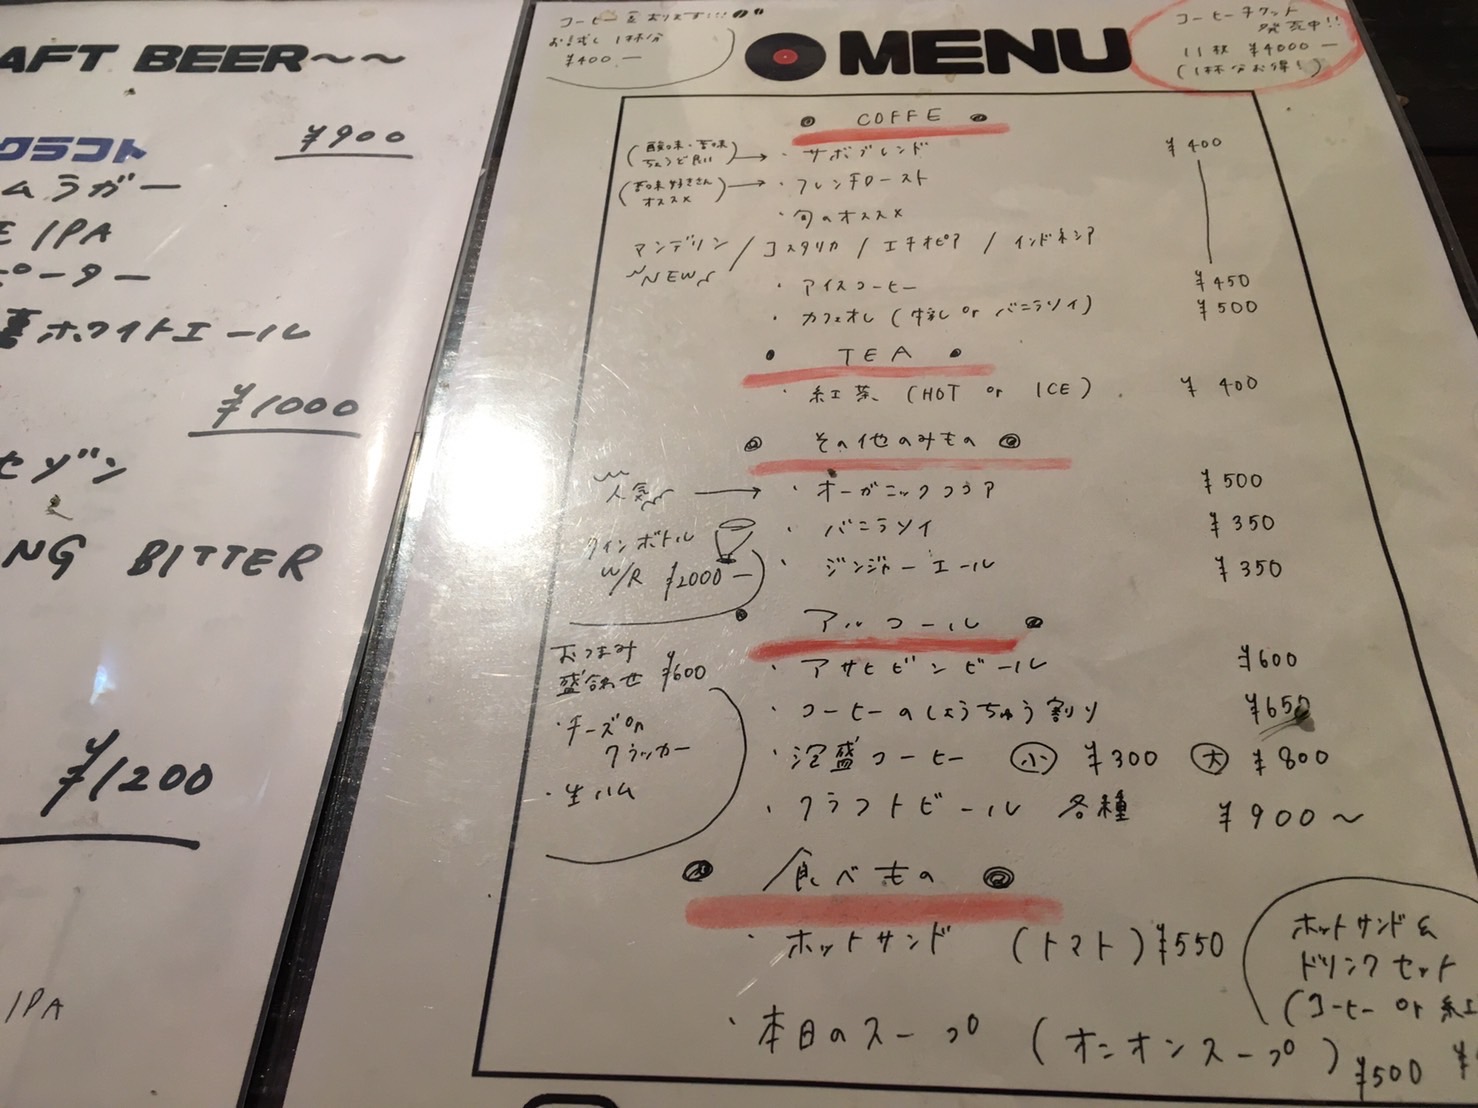 AFT BEER～～
クラフト ¥900
ムラガー
E IPA
ピーター
ホワイトエール
¥1000
セゾン
NG BITTER
¥1200
IPA
¥400 ―
MENU
コーヒーチケット
発売中!!
11枚 ¥4000 ―
(1杯分お得!)
COFFE
(酸味・苦味
ちょうど良い) → ・サボブレンド ¥400
(苦味好きさん
オススメ) → ・フレンチロースト
・旬のオススメ
マンデリン / コスタリカ / エチオピア / インドネシア
NEW
・アイスコーヒー ¥450
・カフェオレ (牛乳 or バニラソイ) ¥500
TEA
・紅茶 (HOT or ICE) ¥400
その他のみもの
人気 → ・オーガニックココア ¥500
・バニラソイ ¥350
・ジンジャーエール ¥350
ワインボトル
W/R ¥2000 ―
アルコール
・アサヒビンビール ¥600
・コーヒーのしょうちゅう割り ¥650
・泡盛コーヒー 小 ¥300 大 ¥800
・クラフトビール 各種 ¥900～
おつまみ
盛合わせ ¥600
・チーズon
クラッカー
・生ハム
食べもの
・ホットサンド (トマト) ¥550
・本日のスープ (オニオンスープ) ¥500
ホットサンド&
ドリンクセット
(コーヒー or 紅